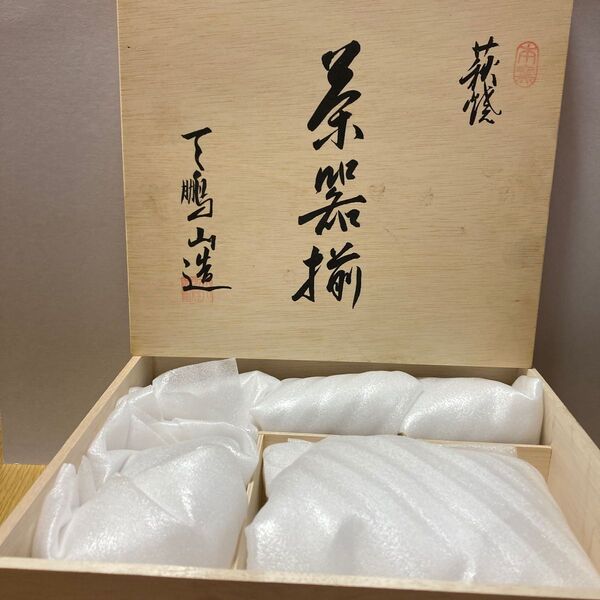 萩焼
茶器揃
天鵬山造